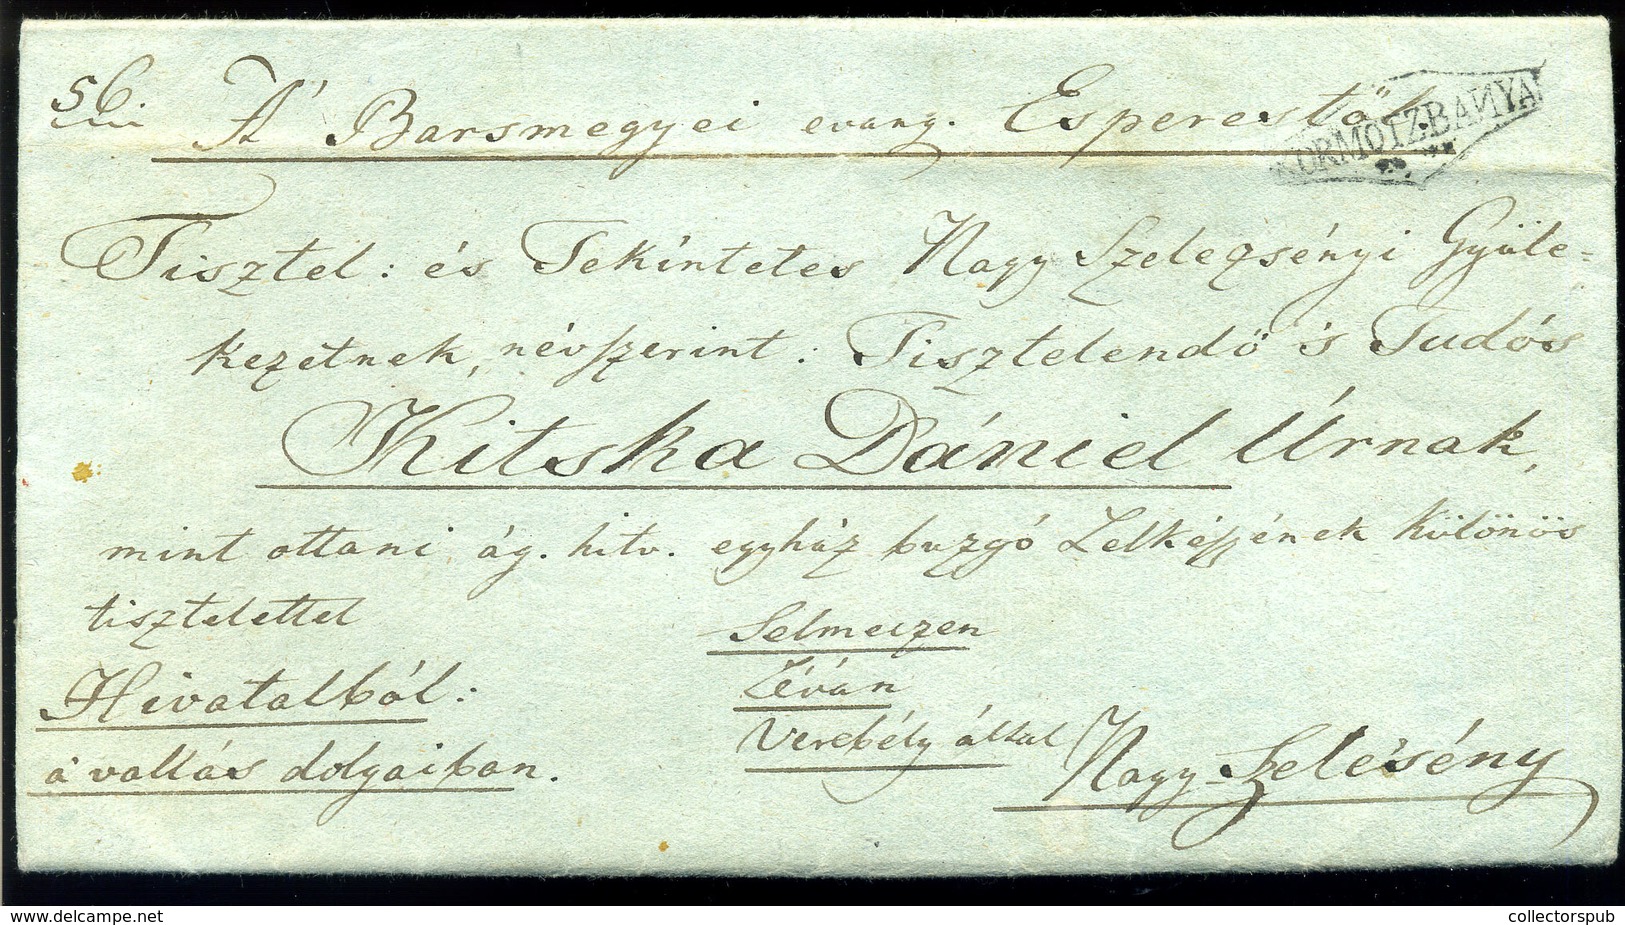 56.
A' Barsmegyei evang. Esperestől
KÖRMÖTZ.BÁNYA
Tisztel: és Tekíntetes Nagy Szelezsényi Gyüle=
kezetnek, névszerint: Tisztelendő 's Tudós
Kitska Dániel Úrnak,
mint ottani ág. hitv. egyház buzgó Lelkészének különös
tisztelettel
Selmeczen
Hivatalból:
Léván
Verebély által
a' vallás dolgaiban.
Nagy-Szelésény
delcampe.net
collectorspub